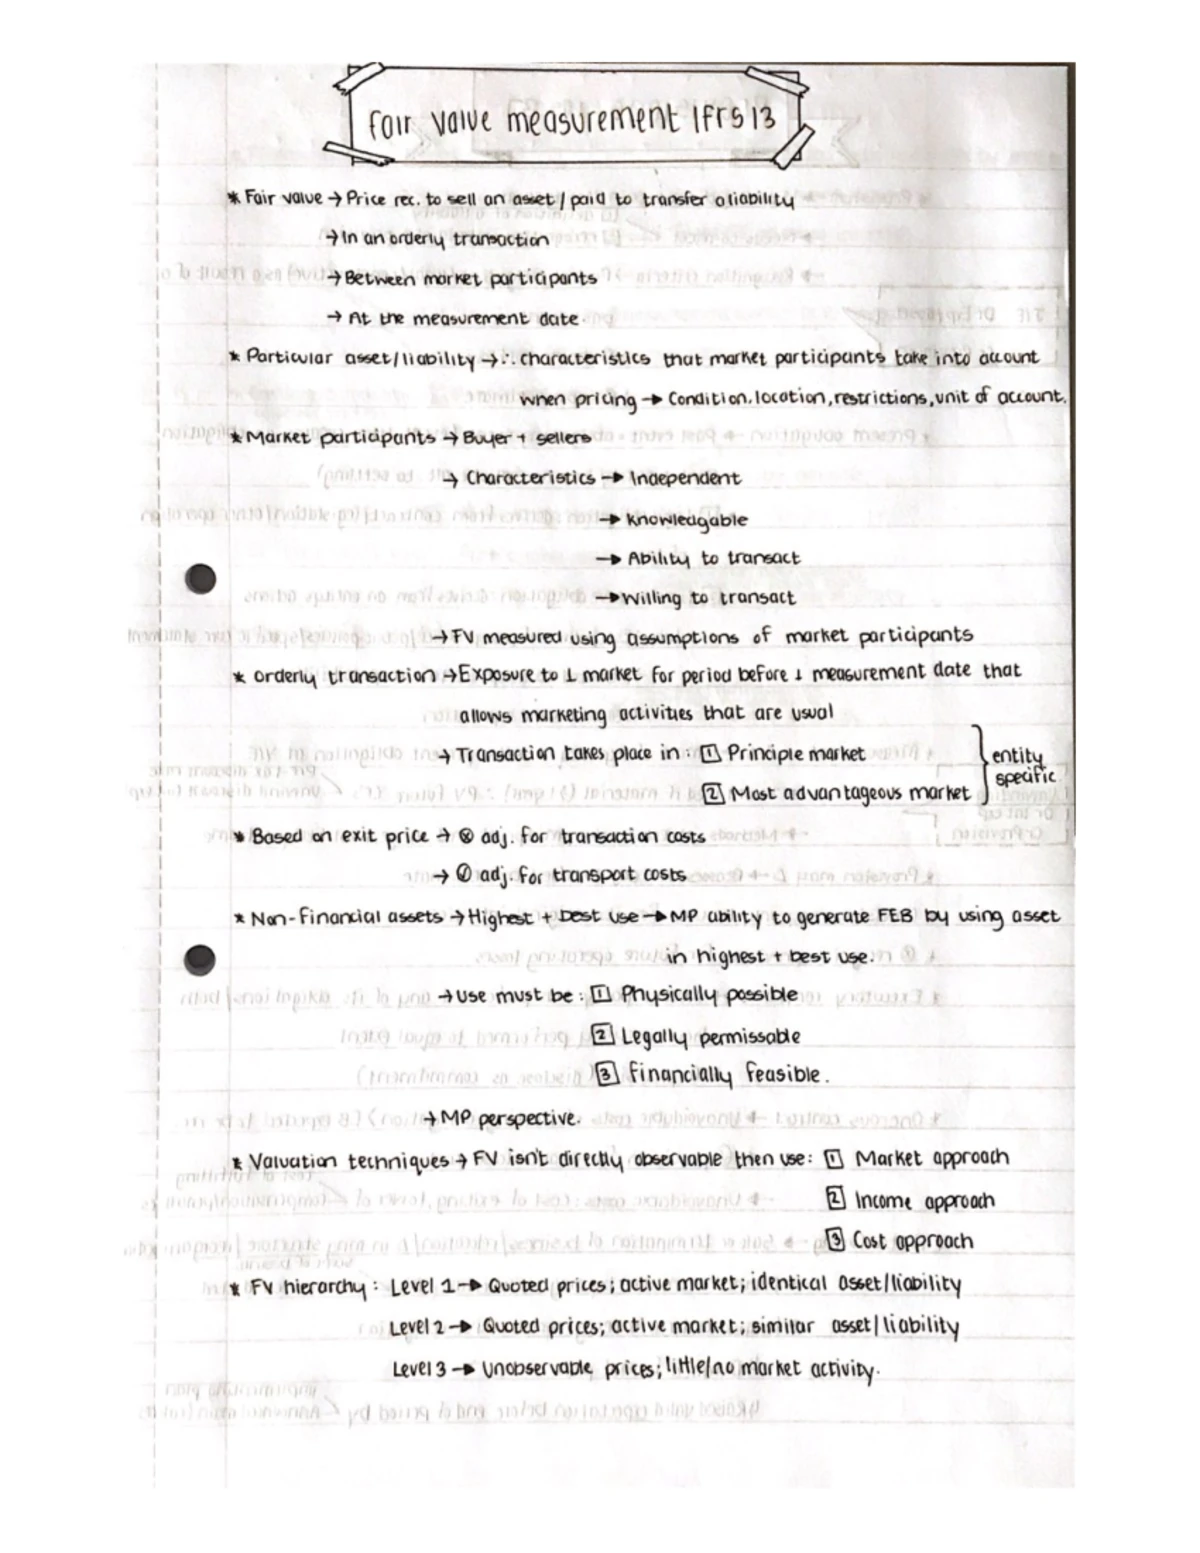 Fair value measurement IFRS 13
* Fair value → Price rec. to sell an asset / paid to transfer a liability
→ In an orderly transaction
→ Between market participants
→ At the measurement date.
* Particular asset/liability → ∴ characteristics that market participants take into account
when pricing → Condition, location, restrictions, unit of account.
* Market participants → Buyer + sellers
→ Characteristics → Independent
→ Knowledgable
→ Ability to transact
→ Willing to transact
→ FV measured using assumptions of market participants
* Orderly transaction → Exposure to ↓ market for period before ↓ measurement date that
allows marketing activities that are usual
→ Transaction takes place in : [1] Principle market
[2] Most advantageous market } entity specific
* Based on exit price → ⊗ adj. for transaction costs
→ ✓ adj. for transport costs
* Non-Financial assets → Highest + best use → MP ability to generate FEB by using asset
in highest + best use.
→ Use must be : [1] Physically possible
[2] Legally permissable
[3] Financially feasible.
→ MP perspective.
* Valuation techniques → FV isn't directly observable then use: [1] Market approach
[2] Income approach
[3] Cost approach
* FV hierarchy : Level 1 → Quoted prices; active market; identical asset/liability
Level 2 → Quoted prices; active market; similar asset/liability
Level 3 → Unobservable prices; little/no market activity.